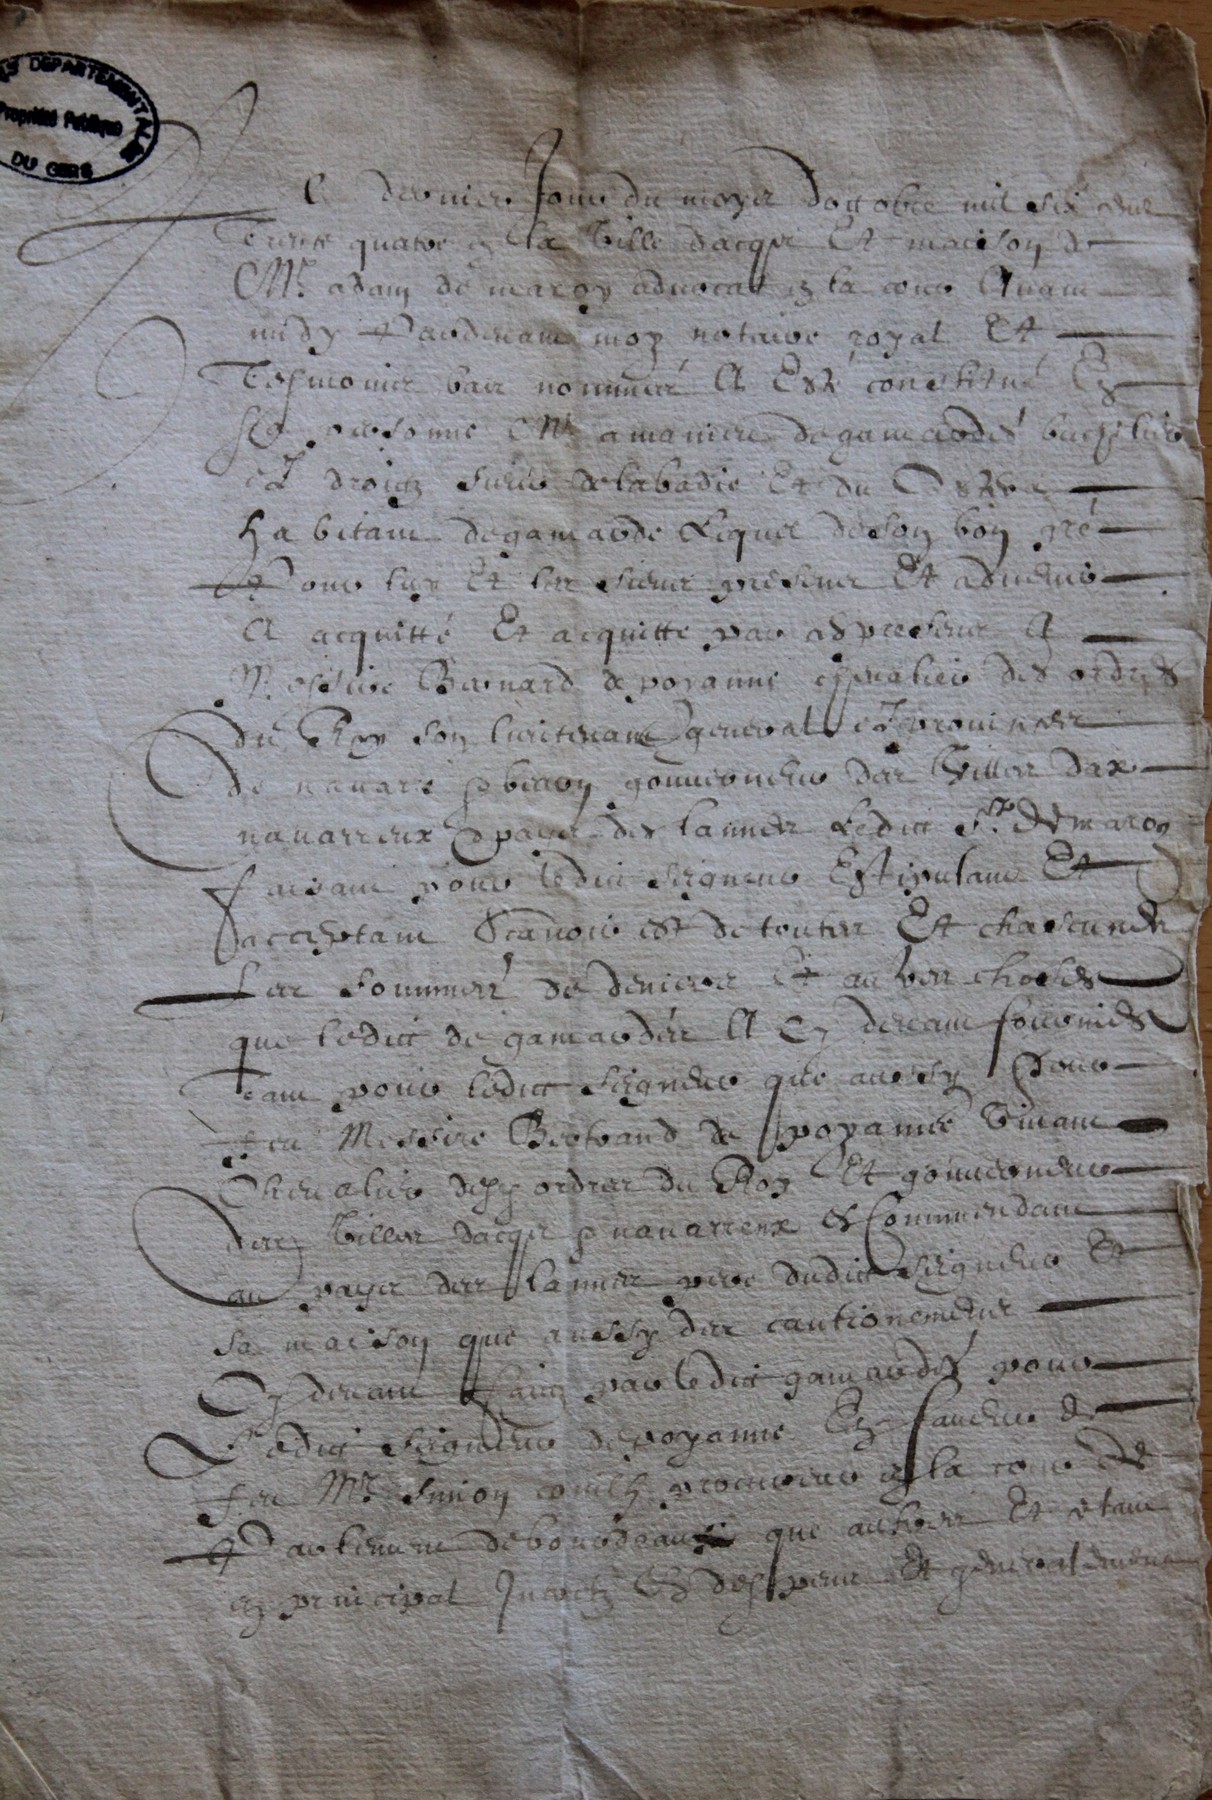 ES DEPARTEMENTALE
Propriété Publique
DU GERS
Le dernier Jour du moys doctobre mil six cens
Trente quatre en la Ville dacqs Et maison de
Mr. adam de maroy advocat en la cour Avant
midy Pardevant moy notaire royal Et
Tesmoins bas nommés A Esté constitué En
sa personne Mr amanieu degamardes bachelier
ez droictz sieur de labadie Et du
habitant degamarde Lequel de son bon gré
Pour luy Et les siens presens Et advenir
A acquitté Et acquitte par as presentes A
Messire Bernard de poyanne chevalier des ordres
du Roy son lieutenant general ez provinces
de navarre & bearn gouverneur des Villes dax
navarrenx & pays des lannes Ledict Sr. de maroy
faisant pour ledict seigneur Estipulant Et
acceptant Scavoir est de toutes Et chascunes
les sommes de deniers Et autres choses
que ledict de gamardes A cy devant fournies
Tant pour ledict seigneur que aussy Pour
feu Messire Bertrand de poyanne Vivant
Chevalier desds ordres du Roy Et gouverneur
des Villes dacqs & navarrenx & Commendant
au pays des lannes pere dudict seigneur Et
sa maison que aussy des cautionemens
Cy devant faictz par ledict gamardes pour
Ledict seigneur de poyanne En faveur de
feu Mr. simon procureur en la cour de
Parlement de bourdeaux que autres Et tant
en principal Interestz & despens Et generalement